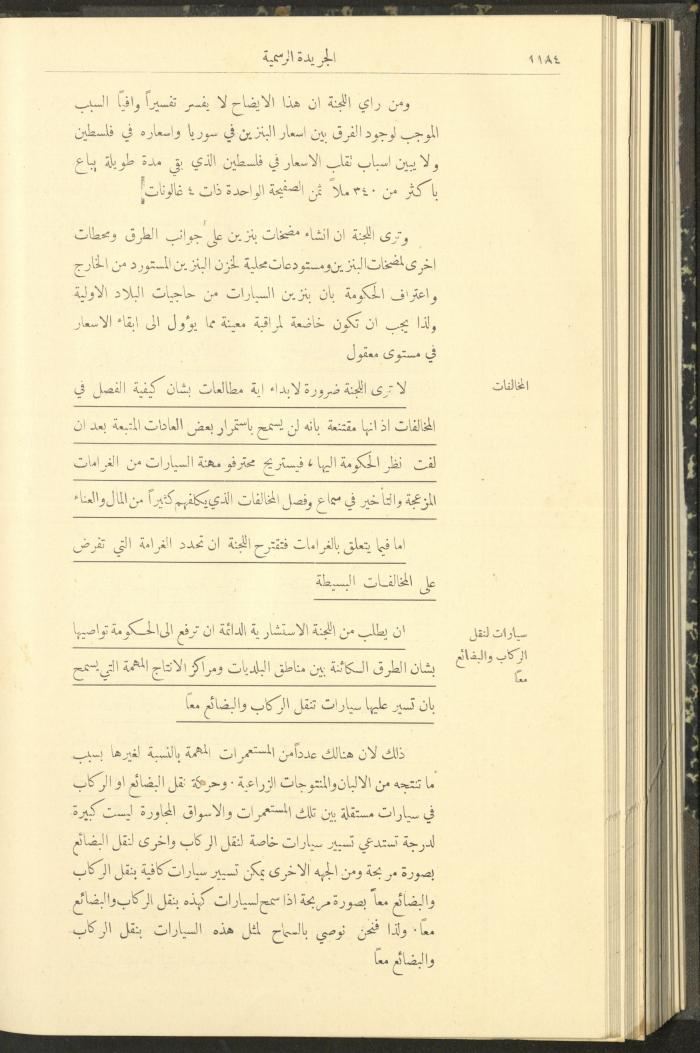 ١١٨٤
الجريدة الرسمية
ومن راي اللجنة ان هذا الايضاح لا يفسر تفسيراً وافيًا السبب
الموجب لوجود الفرق بين اسعار البنزين في سوريا واسعاره في فلسطين
ولا يبين اسباب تقلب الاسعار في فلسطين الذي بقي مدة طويلة يباع
باكثر من ٣٤٠ ملاً ثمن الصفيحة الواحدة ذات ٤ غالونات
وترى اللجنة ان انشاء مضخات بنزين على جوانب الطرق ومحطات
اخرى لمضخات البنزين ومستودعات محلية لخزن البنزين المستورد من الخارج
واعتراف الحكومة بان بنزين السيارات من حاجيات البلاد الاولية
ولذا يجب ان تكون خاضعة لمراقبة معينة مما يؤول الى ابقاء الاسعار
في مستوى معقول
المخالفات
لا ترى اللجنة ضرورة لابداء اية مطالعات بشان كيفية الفصل في
المخالفات اذ انها مقتنعة بانه لن يسمح باستمرار بعض العادات المتبعة بعد ان
لفت نظر الحكومة اليها، فيستريح محترفو مهنة السيارات من الغرامات
المزعجة والتأخير في سماع وفصل المخالفات الذي يكلفهم كثيراً من المال والعناء
اما فيما يتعلق بالغرامات فتقترح اللجنة ان تحدد الغرامة التي تفرض
على المخالفات البسيطة
سيارات لنقل
الركاب والبضائع
معًا
ان يطلب من اللجنة الاستشارية الدائمة ان ترفع الى الحكومة تواصيها
بشان الطرق الكائنة بين مناطق البلديات ومراكز الانتاج المهمة التي يسمح
بان تسير عليها سيارات تنقل الركاب والبضائع معًا
ذلك لان هنالك عدداً من المستعمرات المهمة بالنسبة لغيرها بسبب
ما تنتجه من الالبان والمنتوجات الزراعية. وحركة نقل البضائع او الركاب
في سيارات مستقلة بين تلك المستعمرات والاسواق المجاورة ليست كبيرة
لدرجة تستدعي تسيير سيارات خاصة لنقل الركاب واخرى لنقل البضائع
بصورة مربحة ومن الجهه الاخرى يمكن تسيير سيارات كافية بنقل الركاب
والبضائع معاً بصورة مربحة اذا سمح لسيارات كهذه بنقل الركاب والبضائع
معًا. ولذا فنحن نوصي بالسماح لمثل هذه السيارات بنقل الركاب
والبضائع معًا